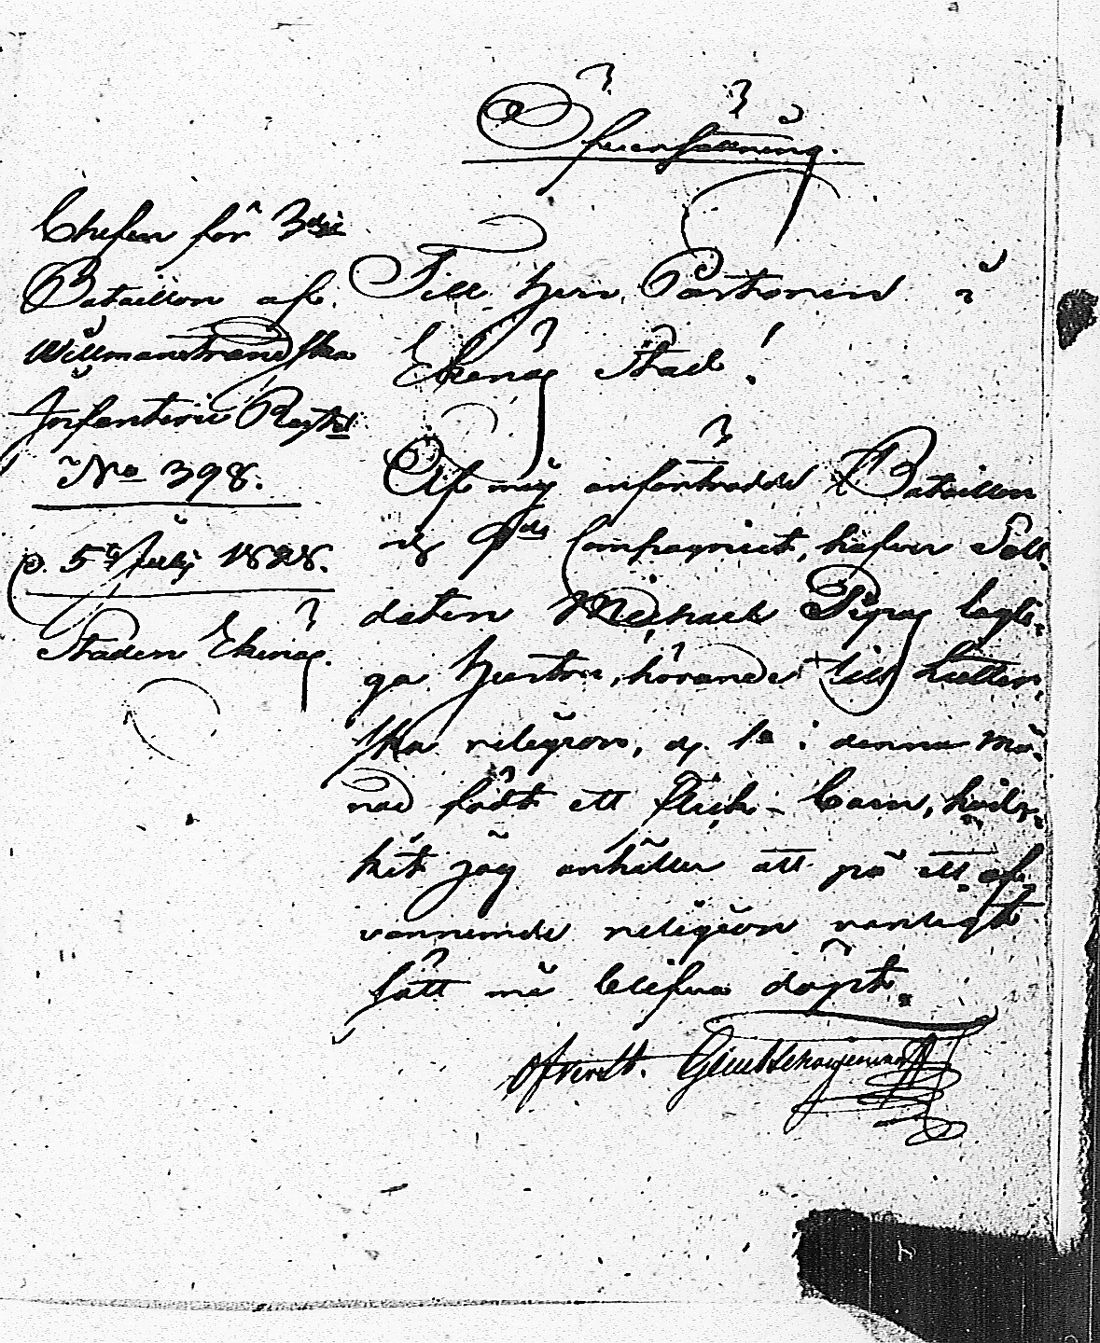 Öfversättning.
Chefen för 3dje
Bataillon af
Willmanstrandska
Infanterie Regtet
No 398.
d. 5te Julij 1828.
Staden Ekenäs.
Till Herr Pastorn i
Ekenäs Stad!
Af mig anförtrodde Bataillon
9de Compagniet, hafver Soll-
daten Michael lagli-
ga hustru, hörande till Lutter-
ska religion, d. 1a i denna må-
nad födt ett flick-barn, hvil-
ket jag anhåller att på ett of-
vannemde religion vanligt
sätt må blifva döpt.
Öfverstl.